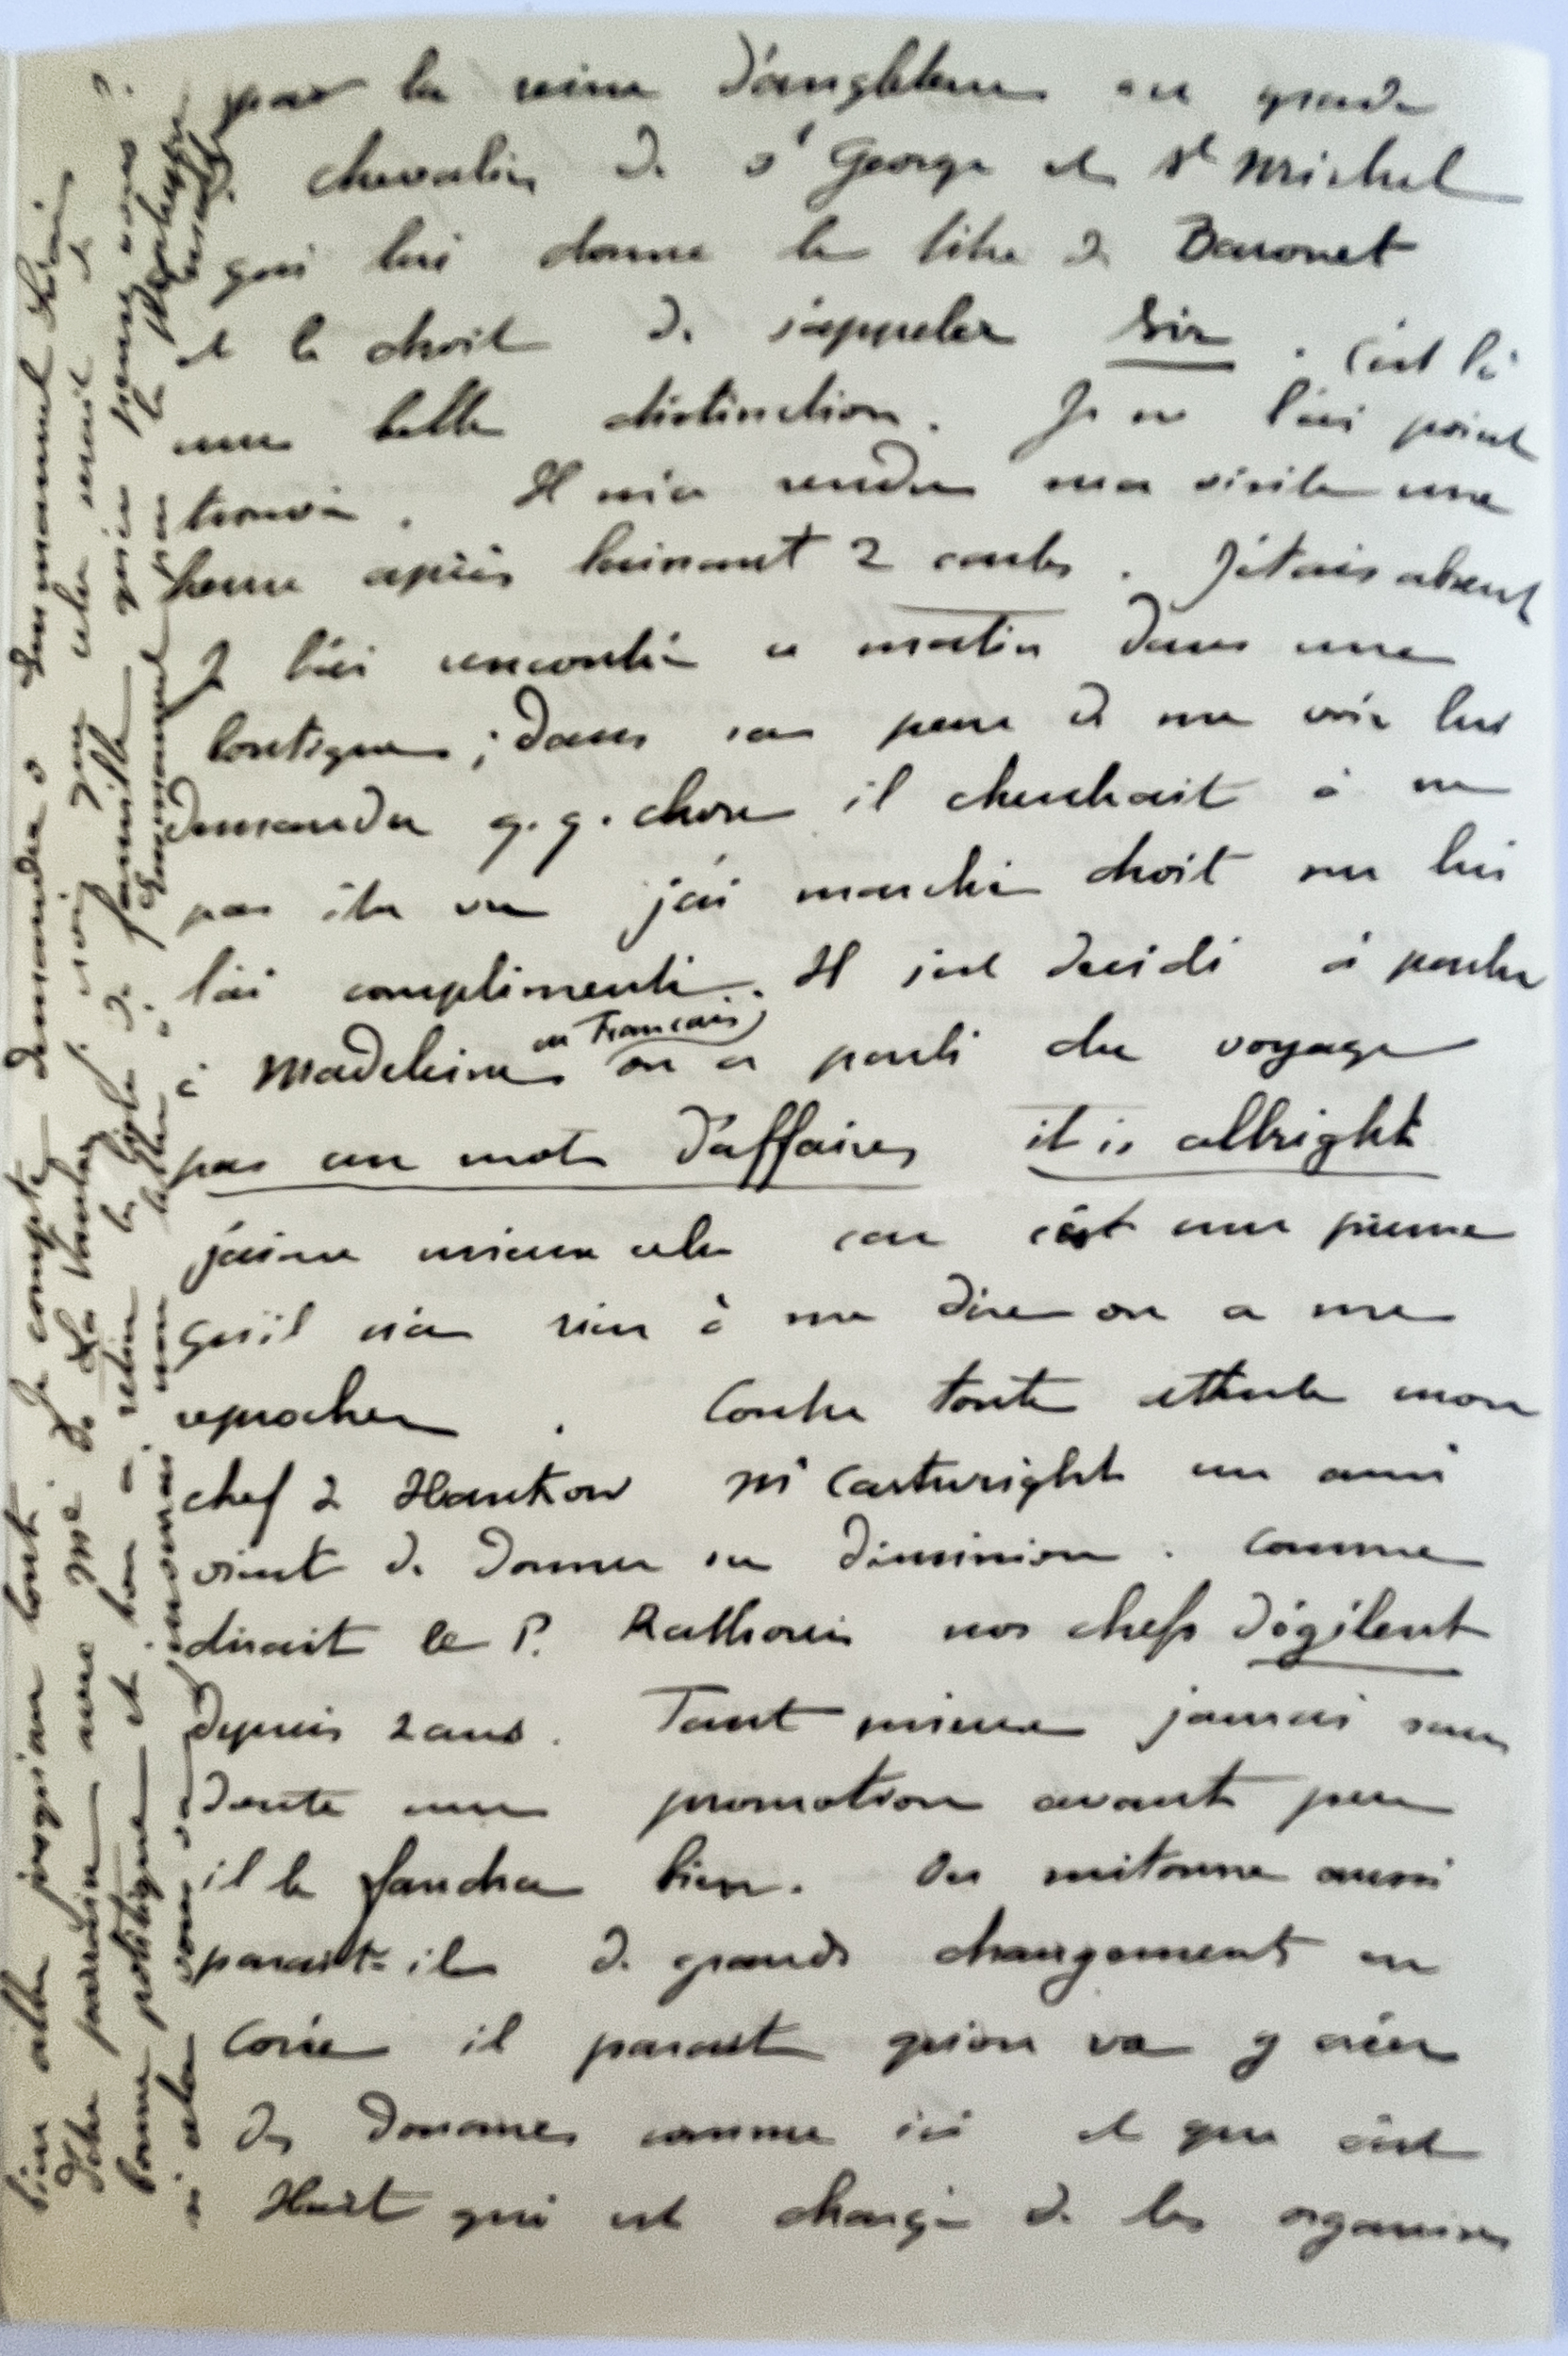 par la reine d'angleterre au grade
de chevalier de St George et St Michel
qui lui donne le titre de Baronet
et le droit de s'appeler Sir. C'est là
une belle distinction. Je ne l'ai point
trouvé. Il m'a rendu ma visite une
heure après laissant 2 cartes. J'étais absent
Je l'ai rencontré ce matin dans une
boutique ; dans sa peur de me voir lui
demander q.q. chose il cherchait à ne
pas être vu j'ai marché droit sur lui
l'ai complimenté. Il s'est décidé à parler
à Madeleine en Français on a parlé du voyage
pas un mot d'affaires it is allright
j'aime mieux cela car c'est une preuve
qu'il n'a rien à me dire ou a me
reprocher. Contre toute attente mon
chef à Hankow Mr Cartwright un ami
vient de donner sa démission. Comme
disait le P. Rathouis nos chefs dégèlent
depuis 2 ans. Tant mieux j'aurai sans
doute une promotion avant peu
il le faudra bien. On mitonne aussi
parait-il de grands changements en
Corée il parait qu'on va y créer
des Douanes comme ici et que c'est
Hart qui est chargé de les organiser
bien aller jusqu'au bout. Je compte demander à Emmanuel d'être
votre parrain avec Me de La
bonne politique et bon à de famille qu'en pensez vous ?
si cela vous va lettre à Emmanuel